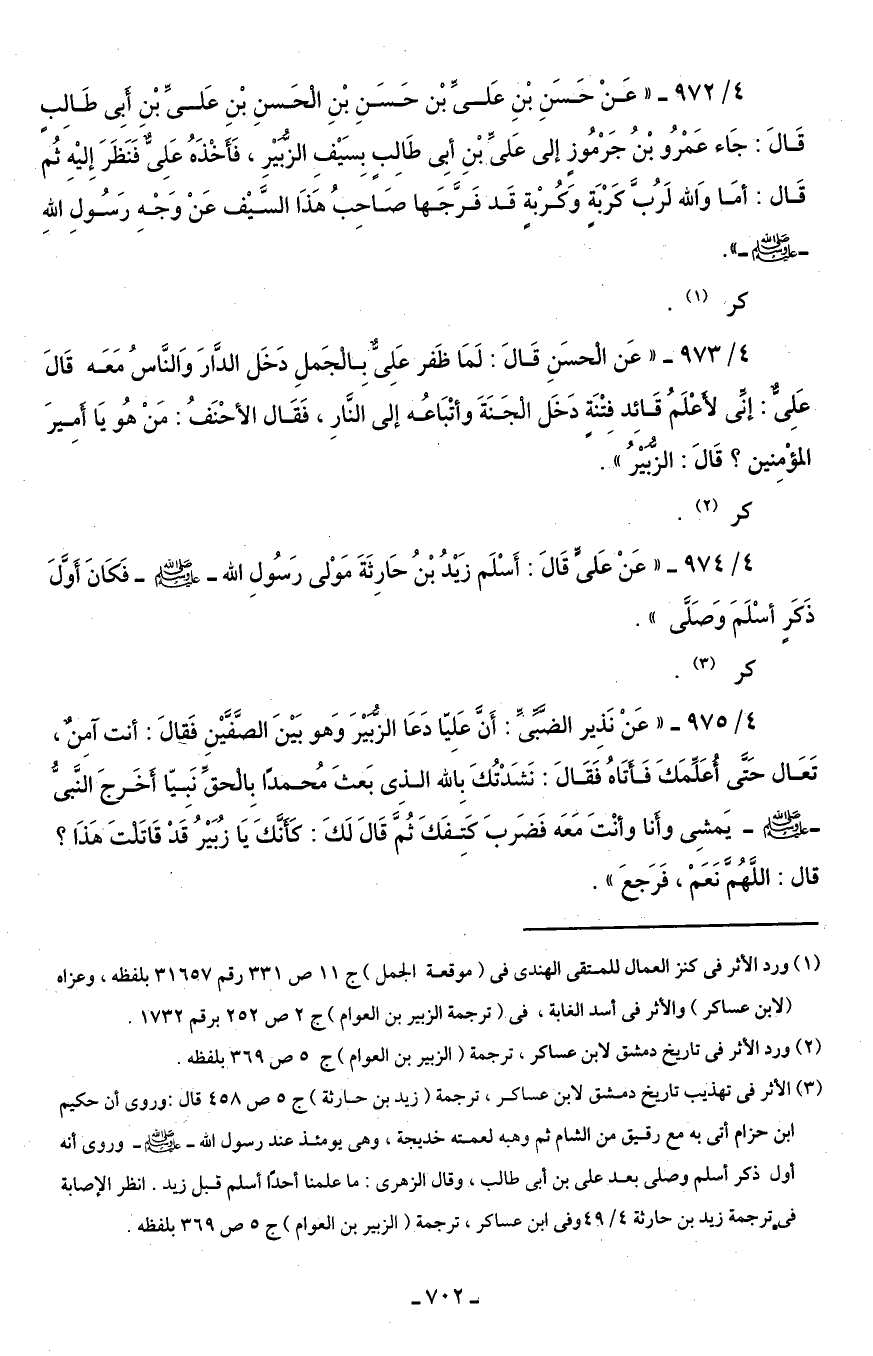 ٤/ ٩٧٢ ـ « عَنْ حَسَنِ بْنِ عَلــىِّ بْنِ حَسَـنِ بْنِ الْحَـسنِ بْنِ عَلــىِّ بْنِ أَبِى طَـالبٍ
قَالَ : جَاء عَمْرُو بْنُ جَرْموُزٍ إلى عَلىِّ بْنِ أبى طَالبٍ بِسَيْفِ الزبُّيْرِ ، فَأَخْذَهُ عَلىٌّ فَنَظَرَ إليْهِ ثُم
قَـال : أمَـا وَالله لَرُبَّ كَرْبَةٍ وَكُـرْبةٍ قَـد فَـرَّجَـهـا صَـاحِبُ هَذَا السَّيْف عَنْ وَجْـهِ رَسُـولِ اللهِ
ـ ﷺ ـ» .
كر (١) .
٤/ ٩٧٣ ـ « عَن الْحسَنِ قَـالَ : لَمَا ظَفر عَلىٌّ بِـالْجَملِ دَخَل الدَّارَ وَالنَّاسُ مَعَـه قَالَ
عَلىٌّ : إنِّى لأَعْلَمُ قَـائِد فِتْنَةٍ دَخَل الجَـنَةَ وأتْبَاعُـه إلى النَّارِ ، فَقَـال الأحْنَفُ : مَنْ هُو يَا أَمِـيرَ
المؤْمِنين ؟ قَالَ : الزبُّيْرُ » .
كر (٢) .
٤/ ٩٧٤ ـ « عَنْ عَلىٍّ قَالَ : أَسْلَم زَيْدُ بْنُ حَارِثَةَ مَوْلى رَسُولِ الله ـ ﷺ ـ فَكَانَ أَوَّلَ
ذَكَرٍ أسْلَمَ وَصَلَّى » .
كر (٣) .
٤/ ٩٧٥ ـ « عَنْ نَذِير الضبَّىِّ : أَنَّ عَليّا دَعَا الزبُّيْرَ وَهو بَيْنَ الصفَّيْنِ فَقالَ : أنت آمنٌ ،
تَعَـال حَتَّى أُعَلِّمكَ فَـأتَاهُ فَقَـالَ : نَشَدْتُكَ بِالله الـذى بَعثَ مُحـمدًا بِالْحقِّ نَبِـيّا أَخـرجَ النَّبىُّ
ـ ﷺ ـ يَمشى وأَنا وأنْتَ مَعَه فَضرَبَ كَتِـفَكَ ثُمَّ قَالَ لَكَ : كَأَنَّكَ يَا زُبَيْرُ قَدْ قَاتَلْتَ هَذَا ؟
قال : اللَّهُمَّ نَعَمْ ، فَرَجعَ » .
(١) ورد الأثر فى كنز العمال للمـتقى الهندى فى ( موقعـة الجمل ) ج ١١ ص ٣٣١ رقم ٣١٦٥٧ بلفظه ، وعزاه
(لابن عساكر ) والأثر فى أسد الغابة ، فى ( ترجمة الزبير بن العوام ) ج ٢ ص ٢٥٢ برقم ١٧٣٢ .
(٢) ورد الأثر فى تاريخ دمشق لابن عساكر ، ترجمة ( الزبير بن العوام ) ج ٥ ص ٣٦٩ بلفظه .
(٣) الأثر فى تهذيب تاريخ دمـشق لابن عساكـر ، ترجمة ( زيد بن حـارثة ) ج ٥ ص ٤٥٨ قال :وروى أن حكيم
ابن حزام أتى به مع رقيق من الشام ثم وهبه لعمته خديجة ، وهى يومئـذ عند رسول الله ـ ﷺ ـ وروى أنه
أول ذكر أسلم وصلى بعـد على بن أبى طالب ، وقال الزهرى : ما علمنا أحدًا أسلم قبل زيد . انظر الإصابة
فى ترجمة زيد بن حارثة ٤/ ٤٩ وفى ابن عساكر ، ترجمة ( الزبير بن العوام ) ج ٥ ص ٣٦٩ بلفظه .
ـ ٧٠٢ ـ